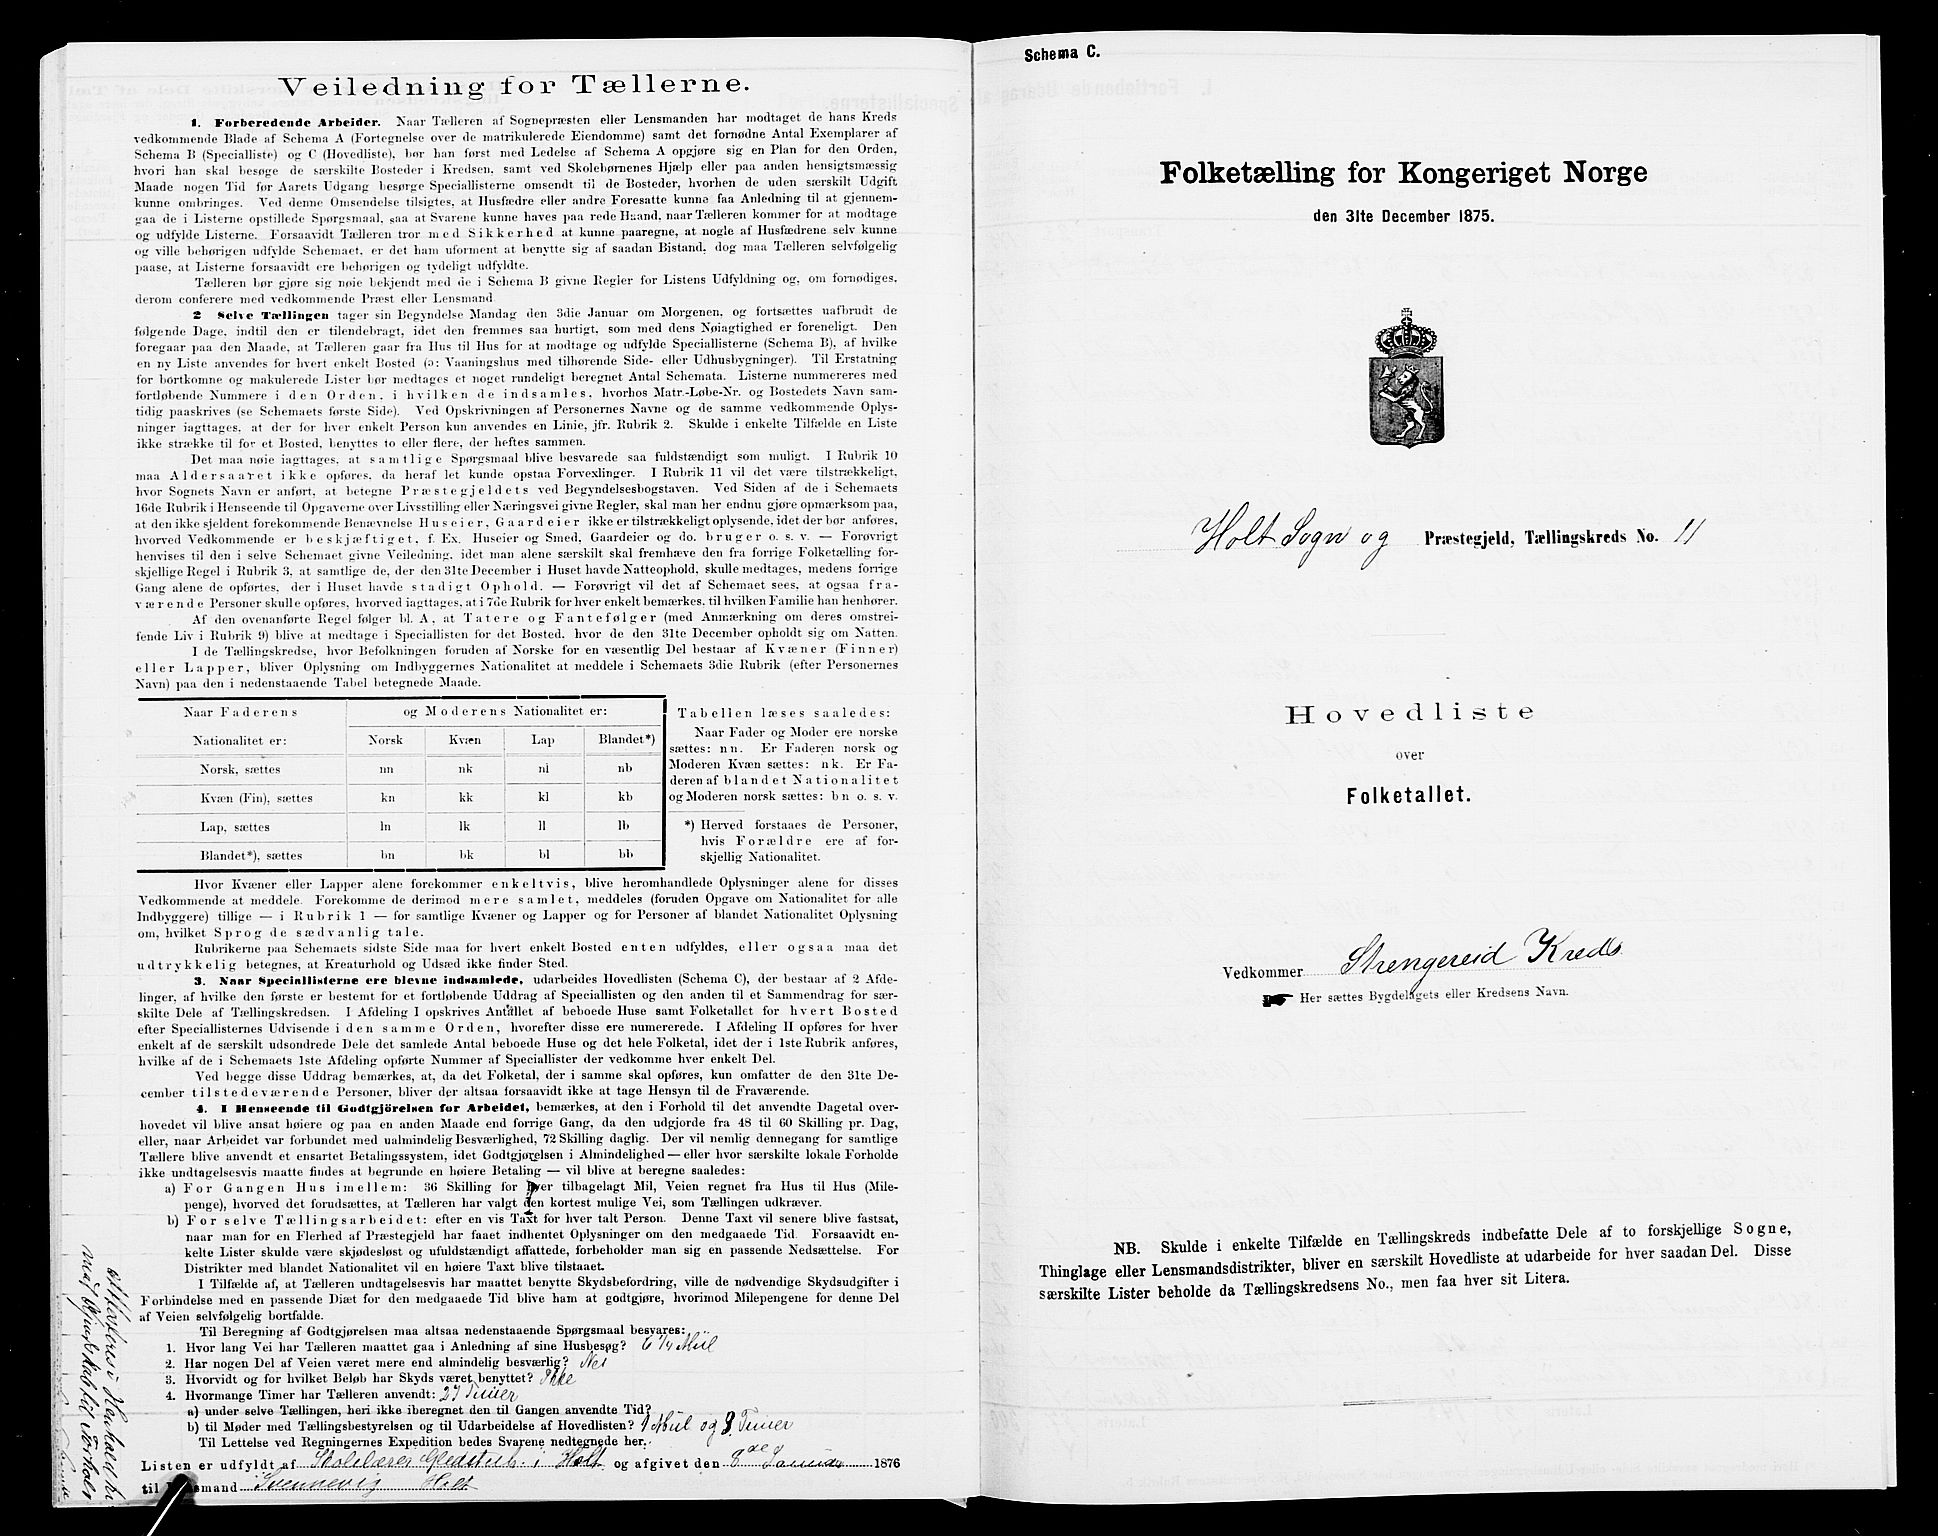 Veiledning for Tællerne.
1. Forberedende Arbeider. Naar Tælleren af Sognepræsten eller Lensmanden har modtaget de hans Kreds
vedkommende Blade af Schema A (Fortegnelse over de matrikulerede Eiendomme) samt det fornødne Antal Exemplarer af
Schema B (Specialliste) og C (Hovedliste), bør han først med Ledelse af Schema A opgjøre sig en Plan for den Orden,
hvori han skal besøge de særskilte Bosteder i Kredsen, samt ved Skolebørnenes Hjælp eller paa anden hensigtsmæssig
Maade nogen Tid før Aarets Udgang besørge Speciallisterne omsendt til de Bosteder, hvorhen de uden særskilt Udgift
kunne ombringes. Ved denne Omsendelse tilsigtes, at Husfædre eller andre Foresatte kunne faa Anledning til at gjennem-
gaa de i Listerne opstillede Spørgsmaal, saa at Svarene kunne haves paa rede Haand, naar Tælleren kommer for at modtage
og udfylde Listerne. Forsaavidt Tælleren tror med Sikkerhed at kunne paaregne, at nogle af Husfædrene selv kunne
og ville behørigen udfylde Schemaet, er det ham uforment at benytte sig af saadan Bistand, dog maa Tælleren selvfølgelig
paase, at Listerne forsaavidt ere behørigen og tydeligt udfyldte.
Tælleren bør gjøre sig nøie bekjendt med de i Schema B givne Regler for Listens Udfyldning og, om fornødiges,
derom conferere med vedkommende Præst eller Lensmand
2 Selve Tællingen tager sin Begyndelse Mandag den 3die Januar om Morgenen, og fortsættes uafbrudt de
følgende Dage, indtil den er tilendebragt, idet den fremmes saa hurtigt, som med dens Nøiagtighed er foreneligt. Den
foregaar paa den Maade, at Tælleren gaar fra Hus til Hus for at modtage og udfylde Speciallisterne (Schema B), af hvilke
en ny Liste anvendes for hvert enkelt Bosted (ɔ: Vaaningshus med tilhørende Side- eller Udhusbygninger). Til Erstatning
for bortkomne og makulerede Lister bør medtages et noget rundeligt beregnet Antal Schemata. Listerne nummereres med
fortløbende Nummere i den Orden, i hvilken de indsamles, hvorhos Matr.-Løbe-Nr. og Bostedets Navn sam-
tidig paaskrives (se Schemaets første Side). Ved Opskrivningen af Personernes Navne og de samme vedkommende Oplys-
ninger iagttages, at der for hver enkelt Person kun anvendes en Linie, jfr. Rubrik 2. Skulde i enkelte Tilfælde en Liste
ikke strække til for et Bosted, benyttes to eller flere, der heftes sammen.
Det maa nøie iagttages, at samtlige Spørgsmaal blive besvarede saa fuldstændigt som muligt. I Rubrik 10
maa Aldersaaret ikke opføres, da heraf let kunde opstaa Forvexlinger. I Rubrik 11 vil det være tilstrækkeligt,
hvor Sognets Navn er anført, at betegne Præstegjeldets ved Begyndelsesbogstaven. Ved Siden af de i Schemaets
16de Rubrik i Henseende til Opgaverne over Livsstilling eller Næringsvei givne Regler, skal man her endnu gjøre opmærksom paa,
at den ikke sjeldent forekommende Benævnelse Huseier, Gaardeier ikke er tilstrækkeligt oplysende, idet der bør anføres,
hvorved Vedkommende er beskjæftiget, f. Ex. Huseier og Smed, Gaardeier og do. bruger o. s. v. — Forøvrigt
henvises til den i selve Schemaet givne Veiledning, idet man alene særskilt skal fremhæve den fra forrige Folketælling for-
skjellige Regel i Rubrik 3, at samtlige de, der den 31te December i Huset havde Natteophold, skulle medtages, medens forrige
Gang alene de opførtes, der i Huset havde stadigt Ophold. — Forøvrigt vil det af Schemaet sees, at ogsaa fra-
værende Personer skulle opføres, hvorved iagttages, at i 7de Rubrik for hver enkelt bemærkes, til hvilken Familie han henhører.
Af den ovenanførte Regel følger bl. A, at Tatere og Fantefølger (med Anmærkning om deres omstrei-
fende Liv i Rubrik 9) blive at medtage i Speciallisten for det Bosted, hvor de den 31te December opholdt sig om Natten.
I de Tællingskredse, hvor Befolkningen foruden af Norske for en væsentlig Del bestaar af Kvæner (Finner)
eller Lapper, bliver Oplysning om Indbyggernes Nationalitet at meddele i Schemaets 3die Rubrik (efter Personernes
Navn) paa den i nedenstaaende Tabel betegnede Maade.
Naar Faderens og Moderens Nationalitet er:
Nationalitet er: Norsk Kvæn Lap Blandet*)
Norsk, sættes nn nk nl nb
Kvæn (Fin), sættes kn kk kl kb
Lap, sættes ln lk ll lb
Blandet*), sættes bn bk bl bb
Tabellen læses saaledes:
Naar Fader og Moder ere norske
sættes: nn. Er Faderen norsk og
Moderen Kvæn sættes: nk. Er Fa-
deren af blandet Nationalitet
og Moderen norsk sættes: bn o. s. v.
*) Herved forstaaes de Personer,
hvis Forældre ere af for-
skjellig Nationalitet.
Hvor Kvæner eller Lapper alene forekommer enkeltvis, blive heromhandlede Oplysninger alene for disses
Vedkommende at meddele. Forekomme de derimod mere samlet, meddeles (foruden Opgave om Nationalitet for alle
Indbyggere) tillige — i Rubrik 1 — for samtlige Kvæner og Lapper og for Personer af blandet Nationalitet Oplysning
om, hvilket Sprog de sædvanlig tale.
Rubrikerne paa Schemaets sidste Side maa for hvert enkelt Bosted enten udfyldes, eller ogsaa maa det
udtrykkelig betegnes, at Kreaturhold og Udsæd ikke finder Sted.
3. Naar Speciallisterne ere blevne indsamlede, udarbeides Hovedlisten (Schema C), der bestaar af 2 Afde-
linger, af hvilke den første er bestemt for et fortløbende Uddrag af Speciallisten og den anden til et Sammendrag for sær-
skilte Dele af Tællingskredsen. I Afdeling I opskrives Antallet af beboede Huse samt Folketallet for hvert Bosted
efter Speciallisternes Udvisende i den samme Orden, hvorefter disse ere numererede. I Afdeling II opføres for hver
enkelt af de særskilt udsondrede Dele det samlede Antal beboede Huse og det hele Folketal, idet der i 1ste Rubrik anføres,
hvilke af de i Schemaets 1ste Afdeling opførte Nummer af Speciallister der vedkomme hver enkelt Del.
Ved begge disse Uddrag bemærkes, at, da det Folketal, der i samme skal opføres, kun omfatter de den 31te De-
cember tilstedeværende Personer, bliver der altsaa forsaavidt ikke at tage Hensyn til de Fraværende.
4. I Henseende til Godtgjörelsen for Arbeidet, bemærkes, at den i Forhold til det anvendte Dagetal over-
hovedet vil blive ansat høiere og paa en anden Maade end forrige Gang, da den udgjorde fra 48 til 60 Skilling pr. Dag,
eller, naar Arbeidet var forbundet med ualmindelig Besværlighed, 72 Skilling daglig. Der vil nemlig dennegang for samtlige
Tællere blive anvendt et ensartet Betalingssystem, idet Godtgjørelsen i Almindelighed — eller hvor særskilte lokale Forholde
ikke undtagelsesvis maatte findes at begrunde en høiere Betaling — vil blive at beregne saaledes:
a) For Gangen Hus imellem: 36 Skilling for hver tilbagelagt Mil, Veien regnet fra Hus til Hus (Mile-
penge), hvorved det forudsættes, at Tælleren har valgt den kortest mulige Vei, som Tællingen udkræver.
b) For selve Tællingsarbeidet: efter en vis Taxt for hver talt Person. Denne Taxt vil senere blive fastsat,
naar man for en Flerhed af Præstegjeld har faaet indhentet Oplysninger om den medgaaede Tid. Forsaavidt en-
kelte Lister skulde være skjødesløst og ufuldstændigt affattede, forbeholder man sig en passende Nedsættelse. For
Distrikter med blandet Nationalitet vil en høiere Taxt blive tilstaaet.
I Tilfælde af, at Tælleren undtagelsesvis har maattet benytte Skydsbefordring, ville de nødvendige Skydsudgifter i
Forbindelse med en passende Diæt for den medgaaede Tid blive ham at godtgjøre, hvorimod Milepengene for denne Del
af Veien selvfølgelig bortfalde.
Til Beregning af Godtgjørelsen maa altsaa nedenstaaende Spørgsmaal besvares:
1. Hvor lang Vei har Tælleren maattet gaa i Anledning af sine Husbesøg? 6 1/4 Miil
2. Har nogen Del af Veien været mere end almindelig besværlig? Nei
3. Hvorvidt og for hvilket Beløb har Skyds været benyttet? Ikke
4. Hvormange Timer har Tælleren anvendt: 27 Timer
a) under selve Tællingen, heri ikke iberegnet den til Gangen anvendte Tid?
b) til Møder med Tællingsbestyrelsen og til Udarbeidelse af Hovedlisten? 1 Miil og 8 Timer
Til Lettelse ved Regningernes Expedition bedes Svarene nedtegnede her.
Listen er udfyldt af Skolelærer i Holt og afgivet den 8de Januar 1876
til Lensmand Svennevig Holt
Schema C.
Folketælling for Kongeriget Norge
den 31te December 1875.
Holt Sogn og Præstegjeld, Tællingskreds No. 11
Hovedliste
over
Folketallet.
Vedkommer Strengereid Kreds
Her sættes Bygdelagets eller Kredsens Navn.
NB. Skulde i enkelte Tilfælde en Tællingskreds indbefatte Dele af to forskjellige Sogne,
Thinglage eller Lensmandsdistrikter, bliver en særskilt Hovedliste at udarbeide for hver saadan Del. Disse
særskilte Lister beholde da Tællingskredsens No., men faa hver sit Litera.